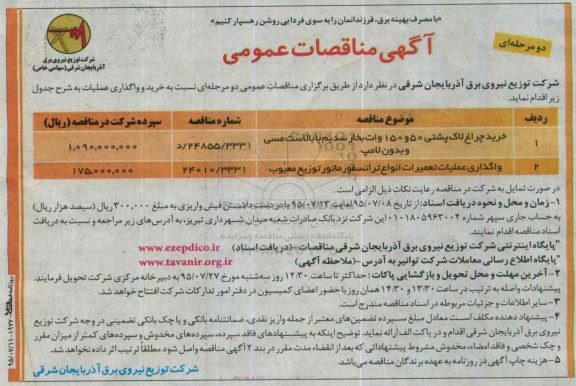 «با مصرف بهینه برق، فرزندانمان را به سوی فردایی روشن رهسپار کنیم»
دو مرحله‌ای
آگهی مناقصات عمومی
شرکت توزیع نیروی برق
آذربایجان شرقی (سهامی خاص)
شرکت توزیع نیروی برق آذربایجان شرقی در نظر دارد از طریق برگزاری مناقصات عمومی دو مرحله‌ای نسبت به خرید و واگذاری عملیات به شرح جدول
زیر اقدام نماید.
ردیف موضوع مناقصه شماره مناقصه سپرده شرکت در مناقصه (ریال)
۱ خرید چراغ لاک پشتی ۵۰ و ۱۵۰ وات بخار سدیم با بالاست مسی و بدون لامپ ۲۴۸۵۵/۳۳۳۱/د ۱,۰۹۰,۰۰۰,۰۰۰
۲ واگذاری عملیات تعمیرات انواع ترانسفورماتور توزیع معیوب ۲۴۰۱۰/۳۳۳۱ ۱۷۵,۰۰۰,۰۰۰
در صورت تمایل به شرکت در مناقصه رعایت نکات ذیل الزامی است.
۱- زمان و محل و نحوه دریافت اسناد: از تاریخ ۹۵/۰۷/۰۸ لغایت ۹۵/۰۷/۱۳ با در دست داشتن فیش واریزی به مبلغ ۳۰۰,۰۰۰ ریال (سیصد هزار ریال)
به حساب جاری سپهر شماره ۰۱۰۱۸۰۵۹۶۳۰۰۴ این شرکت نزد بانک صادرات شعبه میدان شهرداری تبریز، به آدرس‌های زیر مراجعه و نسبت به دریافت
اسناد مناقصه اقدام نمایند.
"پایگاه اینترنتی شرکت توزیع نیروی برق آذربایجان شرقی مناقصات - (دریافت اسناد) www.ezepdico.ir
"پایگاه اطلاع رسانی معاملات شرکت توانیر به آدرس - (ملاحظه آگهی) www.tavanir.org.ir
۲- آخرین مهلت و محل تحویل و بازگشایی پاکات: حداکثر تا ساعت ۱۲:۳۰ روز سه‌شنبه مورخ ۹۵/۰۷/۲۷ به دبیرخانه مرکزی شرکت تحویل فرمایند.
پیشنهادات واصله به ترتیب در ساعت ۱۳:۳۰ و ۱۴:۳۰ همان روز با حضور اعضای کمیسیون در دفتر امور تدارکات شرکت افتتاح خواهد شد.
۳- سایر اطلاعات و جزئیات مربوطه در اسناد مناقصه مندرج است.
۴- پیشنهاد دهنده مکلف است معادل مبلغ سپرده تضمین‌های معتبر از جمله واریز نقدی، ضمانتنامه بانکی و یا چک بانکی تضمینی در وجه شرکت توزیع
نیروی برق آذربایجان شرقی اقدام و در پاکت الف ارائه نماید. توضیح اینکه به پیشنهادهای فاقد سپرده، سپرده‌های مخدوش و سپرده‌های کمتر از میزان مقرر
و چک شخصی و فاقد امضاء، مخدوش مشروط پیشنهاداتی که بعد از انقضاء مدت مقرر در بند ۲ آگهی مناقصه واصل شود مطلقا ترتیب اثر داده نخواهد شد.
۵- هزینه چاپ آگهی در روزنامه به عهده برندگان مناقصه می‌باشد.
شرکت توزیع نیروی برق آذربایجان شرقی